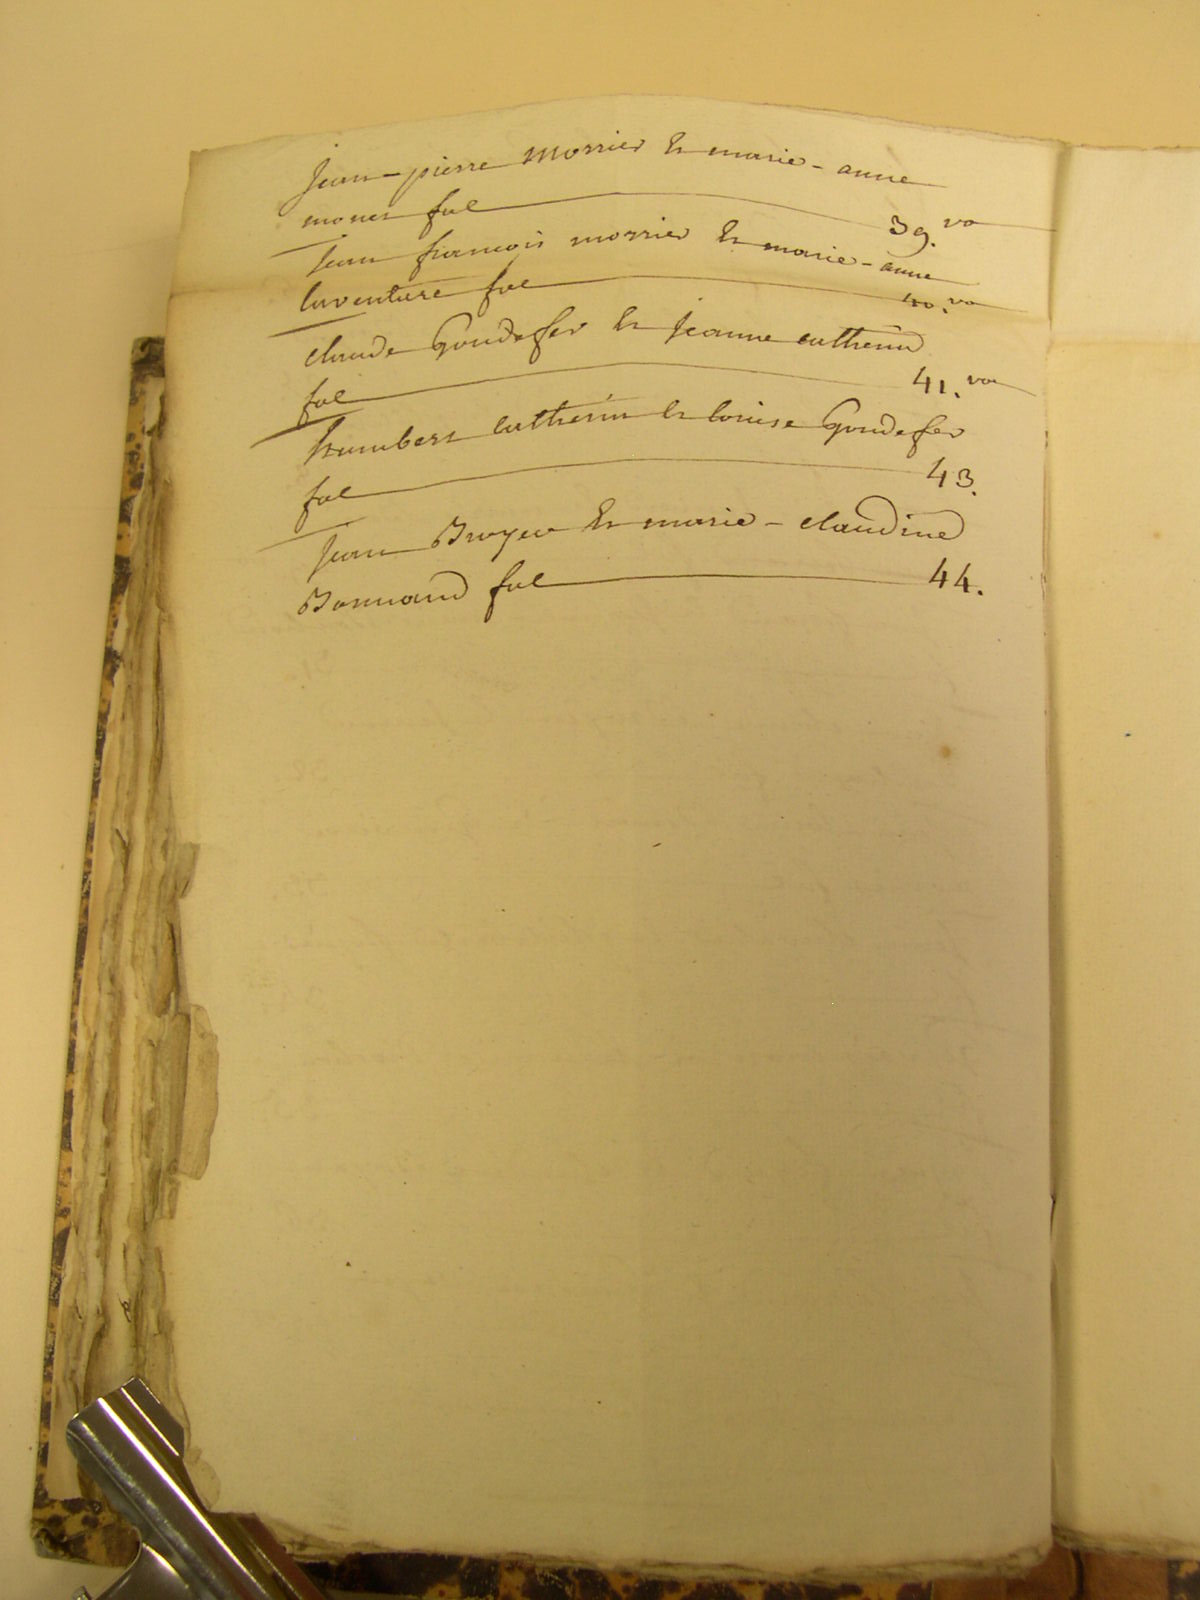 Jean-pierre morrier Et marie-anne
monet fol 39. vo
Jean françois morrier Et marie-anne
laventure fol 40. vo
claude Goudefer Et Jeanne cutherin
fol 41. vo
humbert cutherin Et louise Goudefer
fol 43.
Jean Broyer Et marie-claudine
Bonnand fol 44.